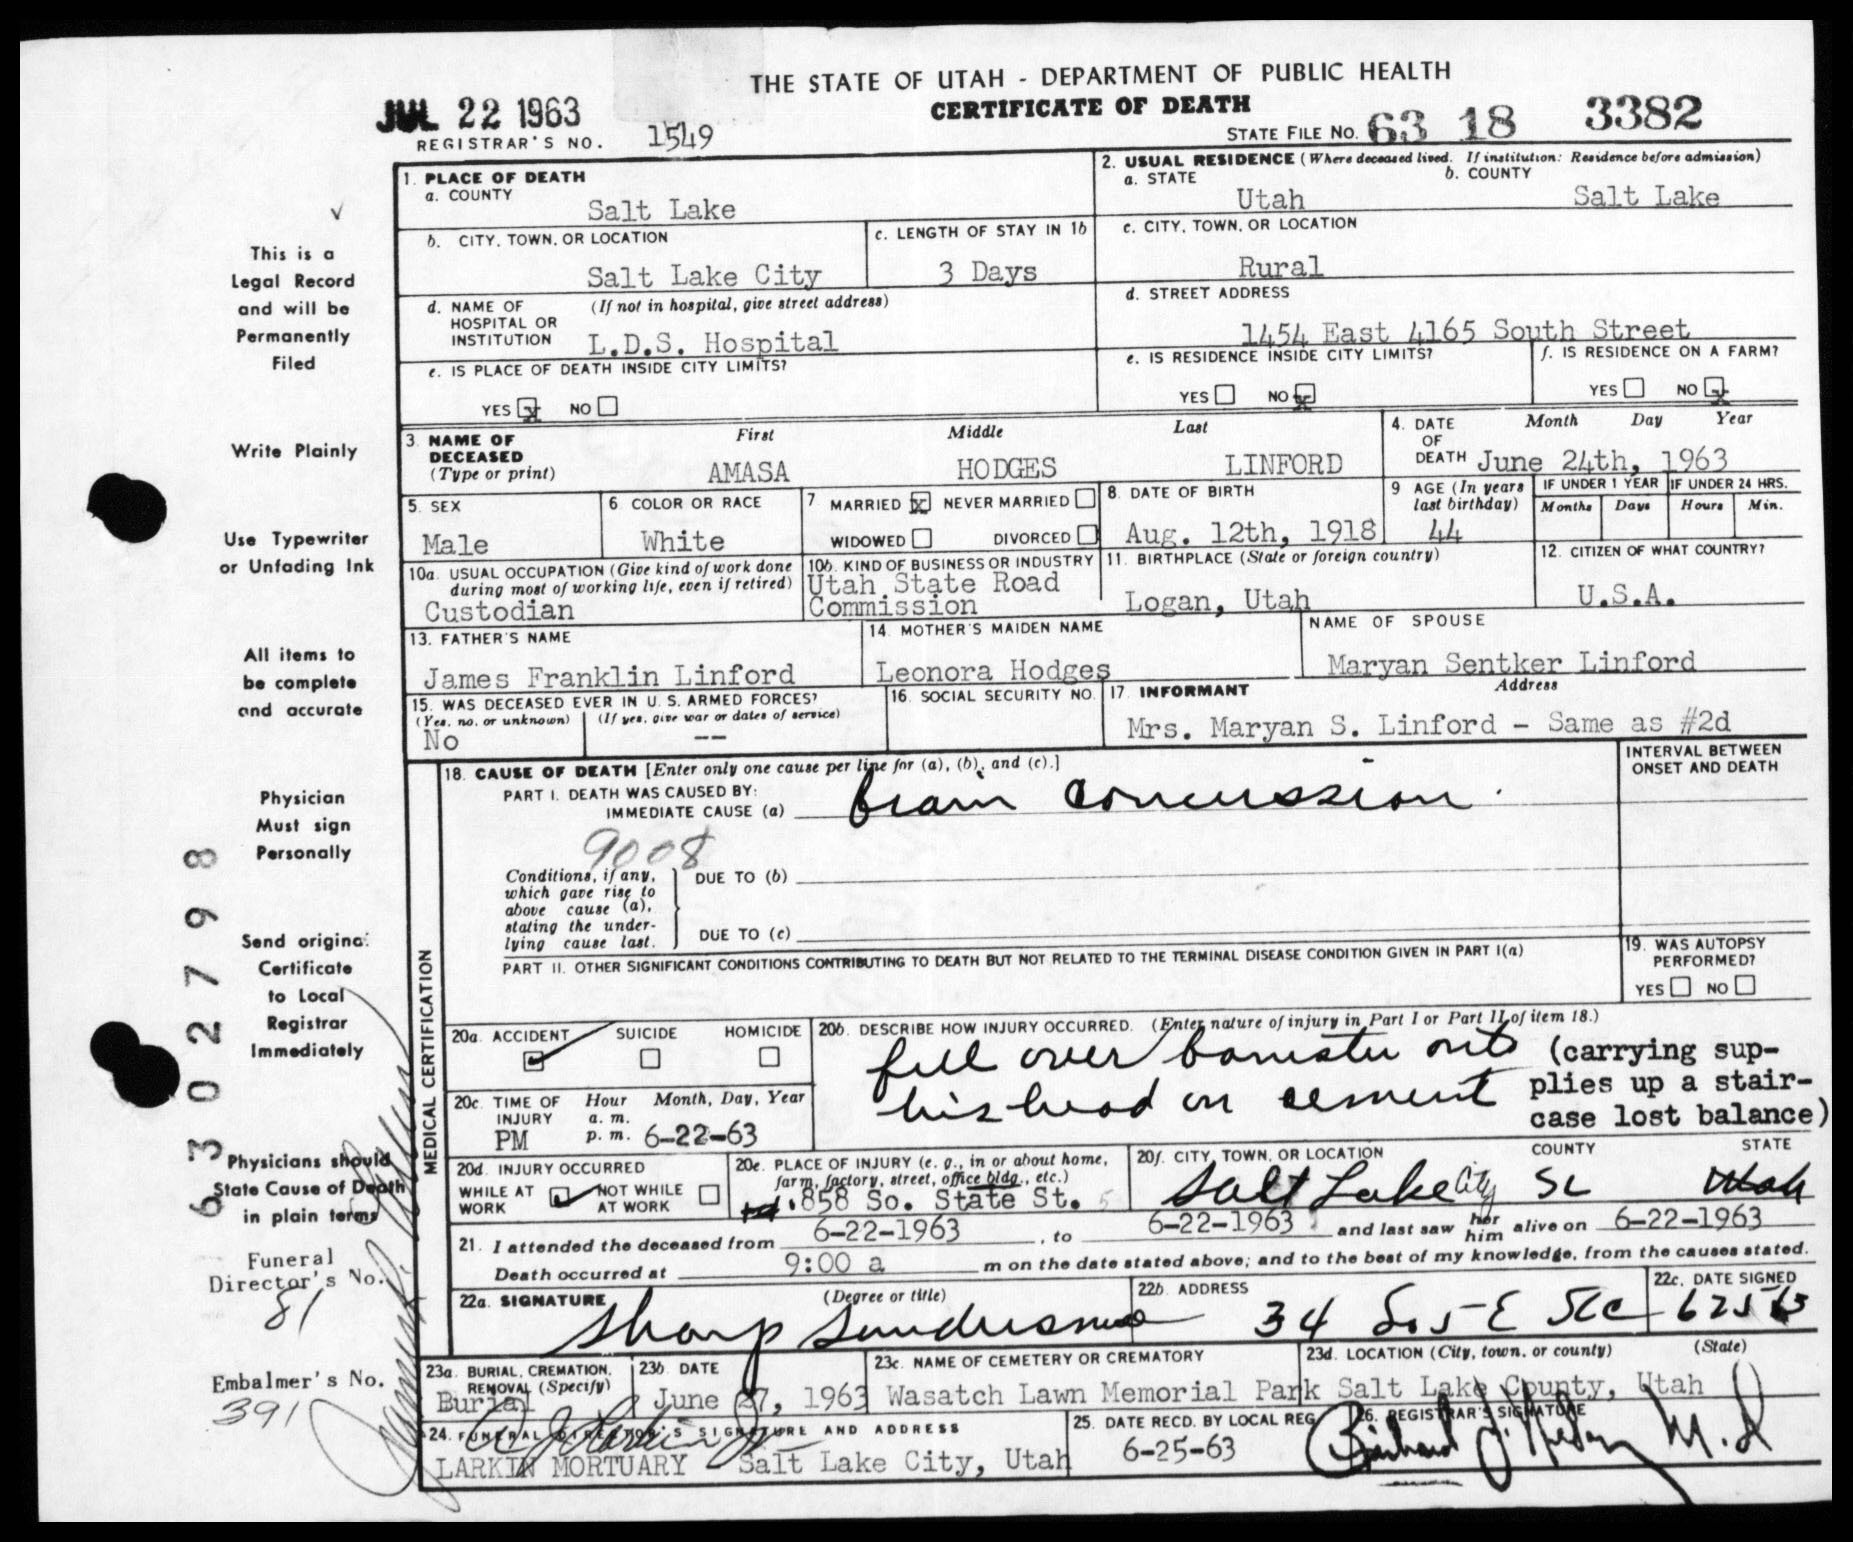 THE STATE OF UTAH - DEPARTMENT OF PUBLIC HEALTH
JUL 22 1963
CERTIFICATE OF DEATH
REGISTRAR'S NO. 1549
STATE FILE NO. 63 18 3382
1. PLACE OF DEATH
a. COUNTY
Salt Lake
2. USUAL RESIDENCE (Where deceased lived. If institution: Residence before admission)
a. STATE b. COUNTY
Utah Salt Lake
b. CITY, TOWN, OR LOCATION
Salt Lake City
c. LENGTH OF STAY IN 1b
3 Days
c. CITY, TOWN, OR LOCATION
Rural
d. NAME OF (If not in hospital, give street address)
HOSPITAL OR
INSTITUTION L.D.S. Hospital
d. STREET ADDRESS
1454 East 4165 South Street
e. IS PLACE OF DEATH INSIDE CITY LIMITS?
YES x NO
e. IS RESIDENCE INSIDE CITY LIMITS?
YES NO x
f. IS RESIDENCE ON A FARM?
YES NO x
3. NAME OF First Middle Last
DECEASED
(Type or print) AMASA HODGES LINFORD
4. DATE Month Day Year
OF
DEATH June 24th, 1963
5. SEX
Male
6 COLOR OR RACE
White
7 MARRIED x NEVER MARRIED
WIDOWED DIVORCED
8. DATE OF BIRTH
Aug. 12th, 1918
9 AGE (In years
last birthday)
44
IF UNDER 1 YEAR IF UNDER 24 HRS.
Months Days Hours Min.
10a. USUAL OCCUPATION (Give kind of work done
during most of working life, even if retired)
Custodian
10b. KIND OF BUSINESS OR INDUSTRY
Utah State Road
Commission
11. BIRTHPLACE (State or foreign country)
Logan, Utah
12. CITIZEN OF WHAT COUNTRY?
U.S.A.
13. FATHER'S NAME
James Franklin Linford
14. MOTHER'S MAIDEN NAME
Leonora Hodges
NAME OF SPOUSE
Maryan Sentker Linford
15. WAS DECEASED EVER IN U. S. ARMED FORCES?
(Yes, no, or unknown) (If yes, give war or dates of service)
No --
16. SOCIAL SECURITY NO.
17. INFORMANT Address
Mrs. Maryan S. Linford - Same as #2d
MEDICAL CERTIFICATION
18. CAUSE OF DEATH [Enter only one cause per line for (a), (b), and (c).]
PART I. DEATH WAS CAUSED BY:
IMMEDIATE CAUSE (a) brain concussion
INTERVAL BETWEEN
ONSET AND DEATH
9008
Conditions, if any,
which gave rise to
above cause (a),
stating the under-
lying cause last.
DUE TO (b)
DUE TO (c)
PART II. OTHER SIGNIFICANT CONDITIONS CONTRIBUTING TO DEATH BUT NOT RELATED TO THE TERMINAL DISEASE CONDITION GIVEN IN PART I(a)
19. WAS AUTOPSY
PERFORMED?
YES NO
20a. ACCIDENT SUICIDE HOMICIDE
20b. DESCRIBE HOW INJURY OCCURRED. (Enter nature of injury in Part I or Part II of item 18.)
fell over banister onto (carrying sup-
his head on cement plies up a stair-
case lost balance)
20c. TIME OF Hour Month, Day, Year
INJURY a. m.
PM p. m. 6-22-63
20d. INJURY OCCURRED
WHILE AT NOT WHILE
WORK AT WORK
20e. PLACE OF INJURY (e. g., in or about home,
farm, factory, street, office bldg., etc.)
858 So. State St.
20f. CITY, TOWN, OR LOCATION COUNTY STATE
Salt Lake City SL Utah
21. I attended the deceased from 6-22-1963, to 6-22-1963 and last saw her him alive on 6-22-1963
Death occurred at 9:00 a m on the date stated above; and to the best of my knowledge, from the causes stated.
22a. SIGNATURE (Degree or title)
Sharp
22b. ADDRESS
34 So 5 E SLC
22c. DATE SIGNED
23a. BURIAL, CREMATION,
REMOVAL (Specify)
Burial
23b. DATE
June 27, 1963
23c. NAME OF CEMETERY OR CREMATORY
Wasatch Lawn Memorial Park
23d. LOCATION (City, town, or county) (State)
Salt Lake County, Utah
24. FUNERAL DIRECTOR'S SIGNATURE AND ADDRESS
LARKIN MORTUARY Salt Lake City, Utah
25. DATE RECD. BY LOCAL REG
6-25-63
26. REGISTRAR'S SIGNATURE
M.D
This is a
Legal Record
and will be
Permanently
Filed
Write Plainly
Use Typewriter
or Unfading Ink
All items to
be complete
and accurate
Physician
Must sign
Personally
Send original
Certificate
to Local
Registrar
Immediately
Physicians should
State Cause of Death
in plain terms
Funeral
Director's No.
81
Embalmer's No.
391
63027798